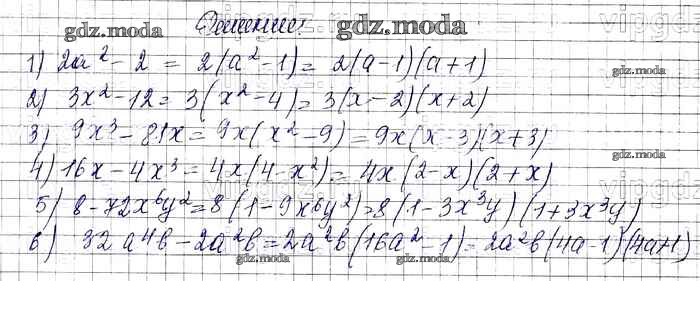 gdz.moda Решение: gdz.moda
1) 2a² - 2 = 2(a² - 1) = 2(a - 1)(a + 1)
gdz.moda
2) 3x² - 12 = 3(x² - 4) = 3(x - 2)(x + 2)
3) 9x³ - 81x = 9x(x² - 9) = 9x(x - 3)(x + 3)
gdz.moda
4) 16x - 4x³ = 4x(4 - x²) = 4x(2 - x)(2 + x)
5) 8 - 72x⁶y² = 8(1 - 9x⁶y²) = 8(1 - 3x³y)(1 + 3x³y)
6) 32a⁴b - 2a²b = 2a²b(16a² - 1) = 2a²b(4a - 1)(4a + 1)
gdz.moda gdz.moda